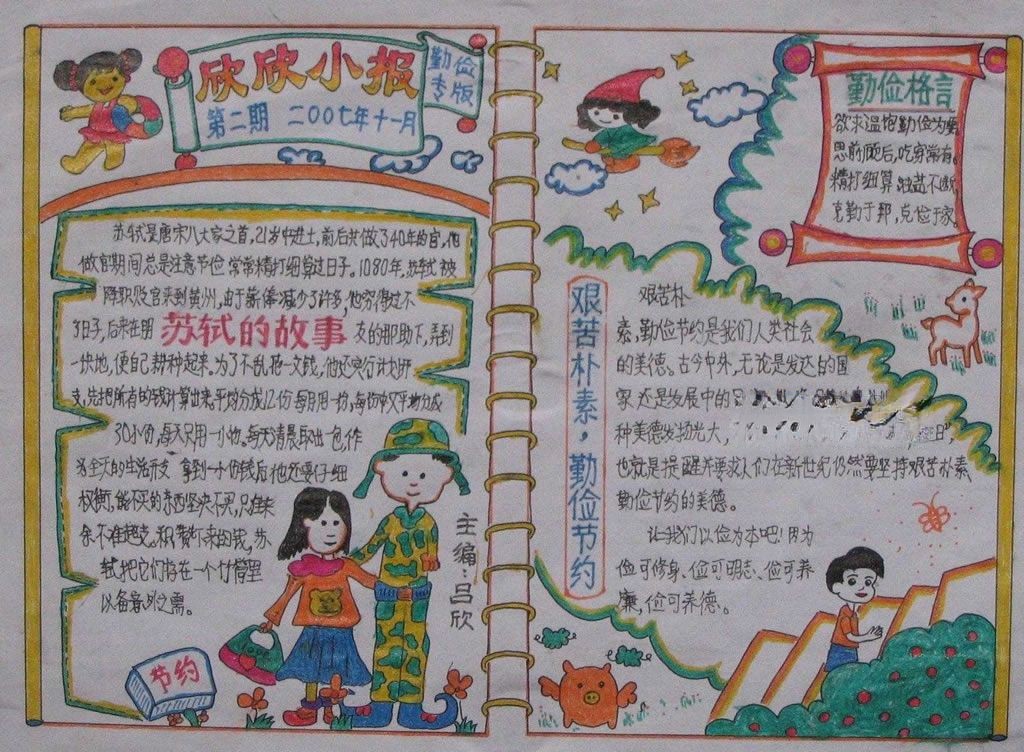 欣欣小报
第二期 二〇〇七年十一月
勤俭
专版
苏轼是唐宋八大家之首,21岁中进土,前后共做了40年的官,他
做官期间总是注意节俭常常精打细算过日子。1080年,苏轼被
降职贬官来到黄州,由于薪俸减少了许多,他穷得过不
了日子,后来在朋 友的帮助下,弄到
苏轼的故事
一块地,便自己耕种起来。为了不乱花一文钱,他还实行计划开
支,先把所有的钱计算出来,平均分成12份每月用一份,每份中又平均分成
30小份,每天只用一小份。每天清晨取出一包,作
为全天的生活开支 拿到一小份钱后他还要仔细
权衡,能不买的东西坚决不买,只准剩
余不准超支。积攒下来的钱,苏
轼把它们存在一个竹筒里
以备意外之需。
节约
主编:吕欣
勤俭格言
欲求温饱勤俭为要
思前顾后,吃穿常有。
精打细算 油盐不断
克勤于邦,克俭于家
艰苦朴素,勤俭节约
艰苦朴
素,勤俭节约是我们人类社会
的美德。古今中外,无论是发达的国
家 还是发展中的
种美德发扬光大, 日”
也就是提醒并要求人们在新世纪仍然要坚持艰苦朴素
勤俭节约的美德。
让我们以俭为本吧!因为
俭可修身、俭可明志、俭可养
廉,俭可养德。